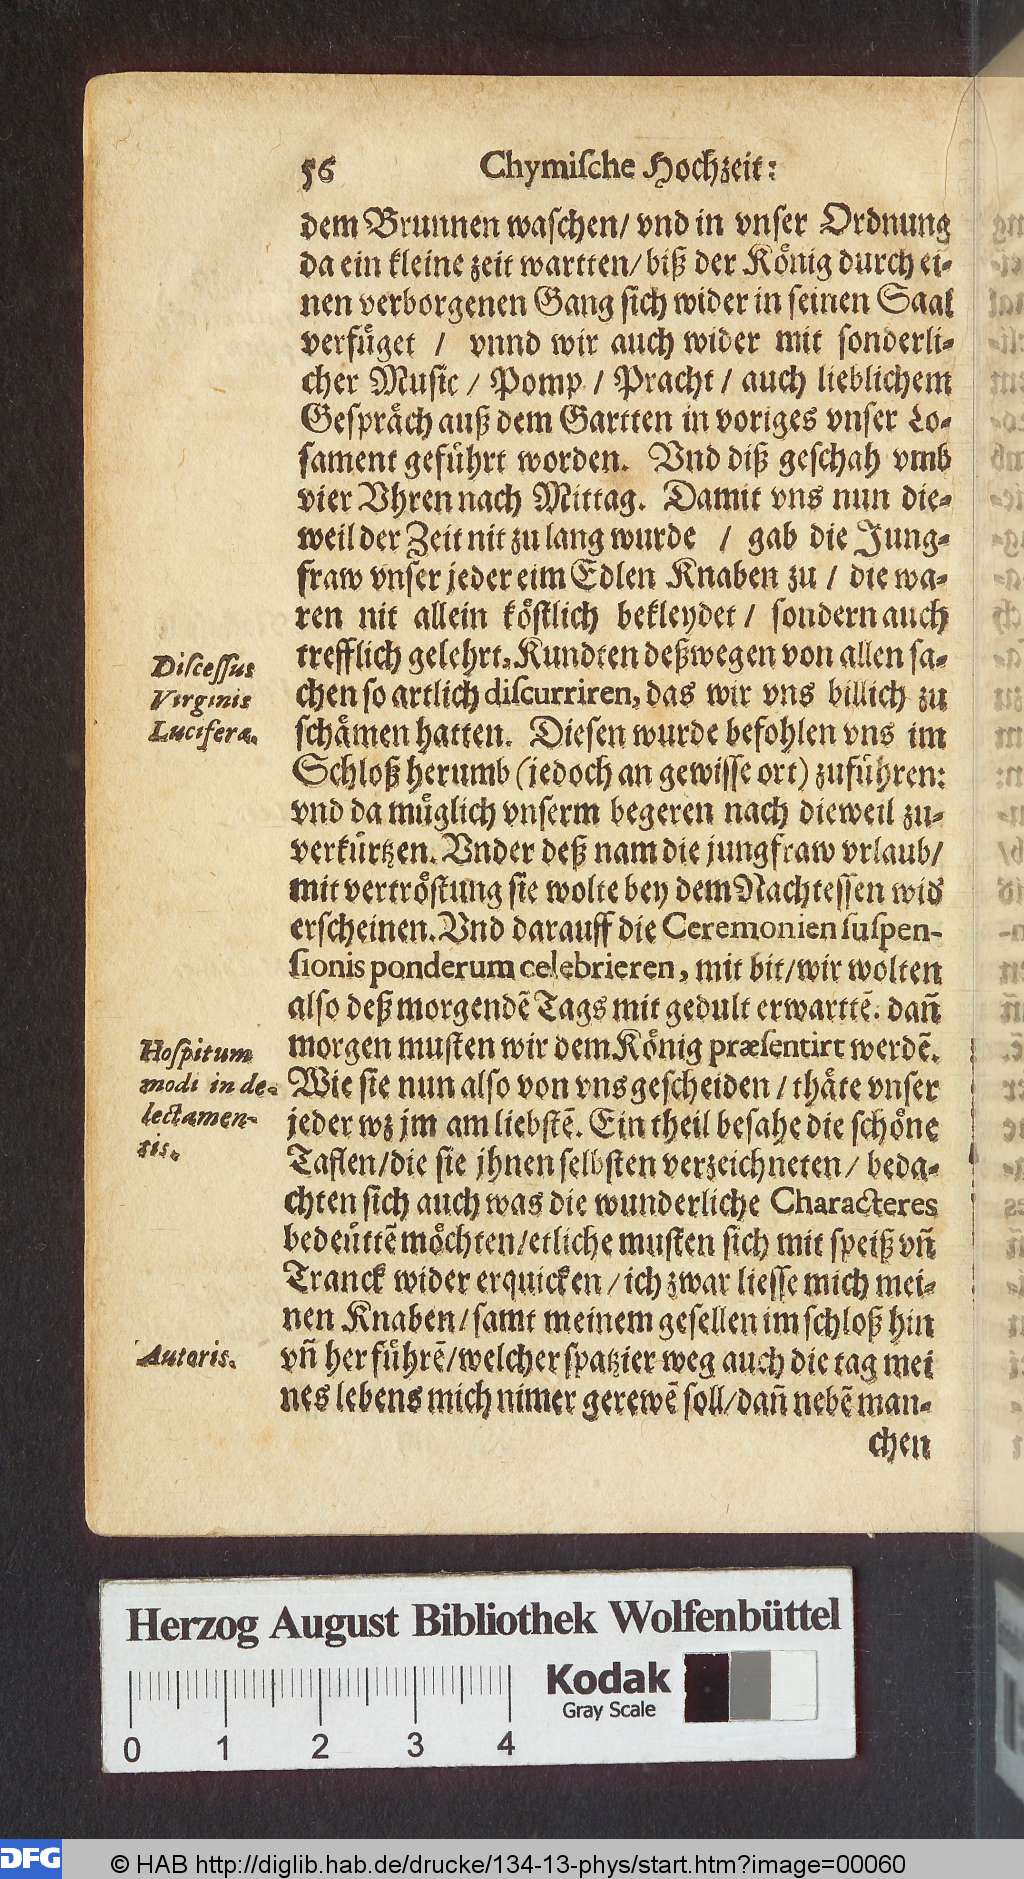 56 Chymiſche Hochzeit:
dem Brunnen waſchen/ vnd in vnſer Ordnung
da ein kleine zeit wartten/ biß der Koͤnig durch ei-
nen verborgenen Gang ſich wider in ſeinen Saal
verfuͤget / vnnd wir auch wider mit ſonderli-
cher Muſic / Pomp / Pracht / auch lieblichem
Geſpraͤch auß dem Gartten in voriges vnſer Lo-
ſament gefuͤhrt worden. Vnd diß geſchah vmb
vier Vhren nach Mittag. Damit vns nun die-
weil der Zeit nit zu lang wurde / gab die Jung-
fraw vnſer jeder eim Edlen Knaben zu / die wa-
ren nit allein koͤſtlich bekleydet / ſondern auch
trefflich gelehrt, Kundten deßwegen von allen ſa-
chen ſo artlich diſcurriren, das wir vns billich zu
ſchaͤmen hatten. Dieſen wurde befohlen vns im
Schloß herumb (jedoch an gewiſſe ort) zufuͤhren:
vnd da muͤglich vnſerm begeren nach dieweil zu-
verkuͤrtzen. Vnder deß nam die jungfraw vrlaub/
mit vertroͤſtung ſie wolte bey dem Nachteſſen wid
erſcheinen. Vnd darauff die Ceremonien ſuſpen-
ſionis ponderum celebrieren, mit bit/ wir wolten
alſo deß morgendẽ Tags mit gedult erwarttẽ. dañ
morgen muſten wir dem Koͤnig præſentirt werdẽ.
Wie ſie nun alſo von vns geſcheiden / thaͤte vnſer
jeder wz jm am liebſtẽ. Ein theil beſahe die ſchoͤne
Taflen/ die ſie jhnen ſelbſten verzeichneten / beda-
chten ſich auch was die wunderliche Characteres
bedeuͤttẽ moͤchten/ etliche muſten ſich mit ſpeiß vñ
Tranck wider erquicken / ich zwar lieſſe mich mei-
nen Knaben/ ſamt meinem geſellen im ſchloß hin
vñ her fuͤhrẽ/ welcher ſpatzier weg auch die tag mei
nes lebens mich nimer gerewẽ ſoll/ dañ nebẽ man-
chen
Diſceſſus
Virginis
Luciferæ.
Hoſpitum
modi in de-
lectamen-
tis.
Autoris.
Herzog August Bibliothek Wolfenbüttel
Kodak
Gray Scale
0 1 2 3 4
DFG
© HAB http://diglib.hab.de/drucke/134-13-phys/start.htm?image=00060